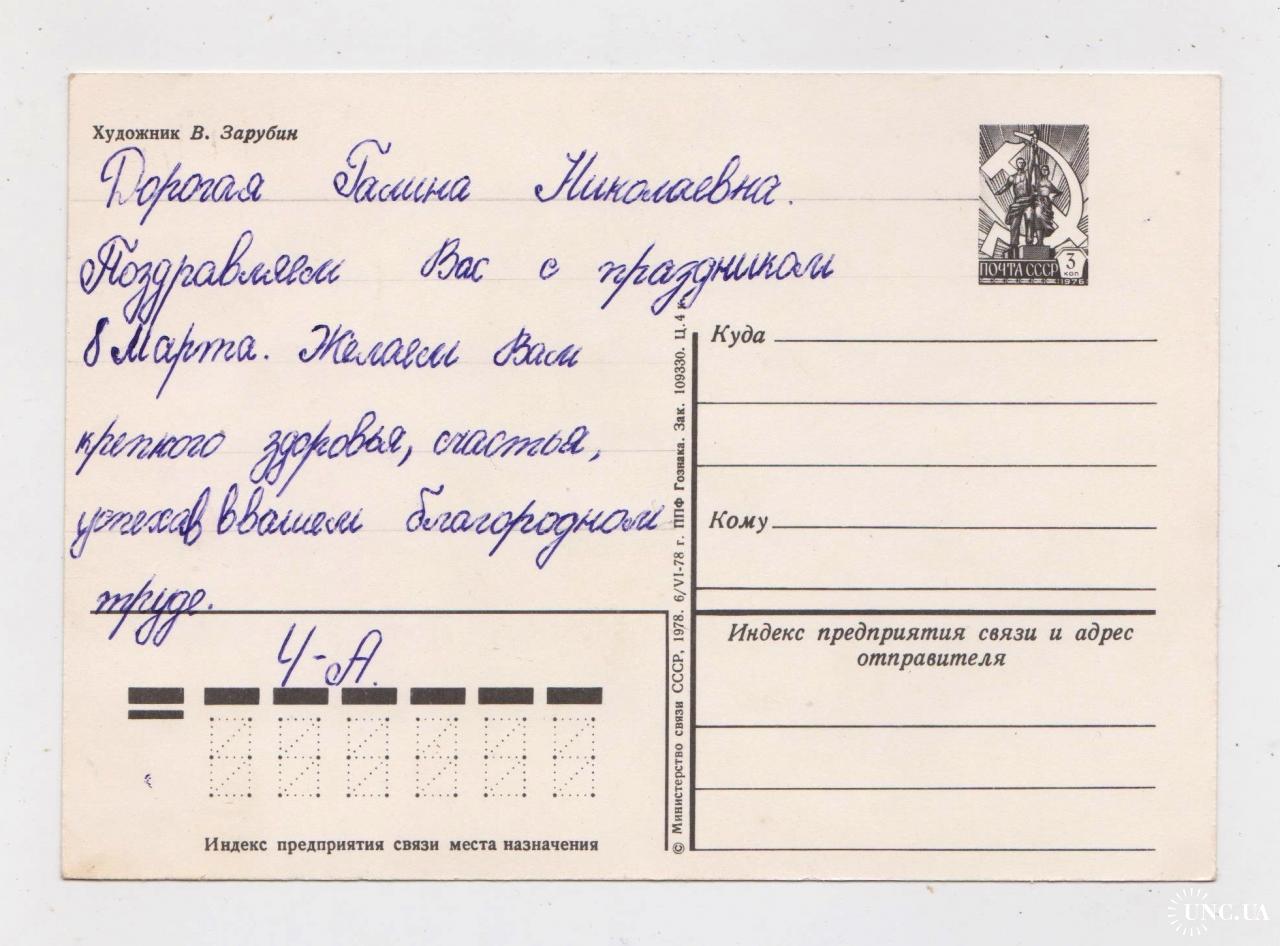 Художник В. Зарубин
Дорогая Галина Николаевна.
Поздравляем Вас с праздником
8 Марта. Желаем Вам
крепкого здоровья, счастья,
успехов в вашем благородном
труде.
4-А.
ПОЧТА СССР
3
коп
1976
Куда
Кому
Индекс предприятия связи и адрес
отправителя
Индекс предприятия связи места назначения
© Министерство связи СССР, 1978. 6/VI-78 г. ППФ Гознака. Зак. 109330. Ц. 4 к.
UNC.UA